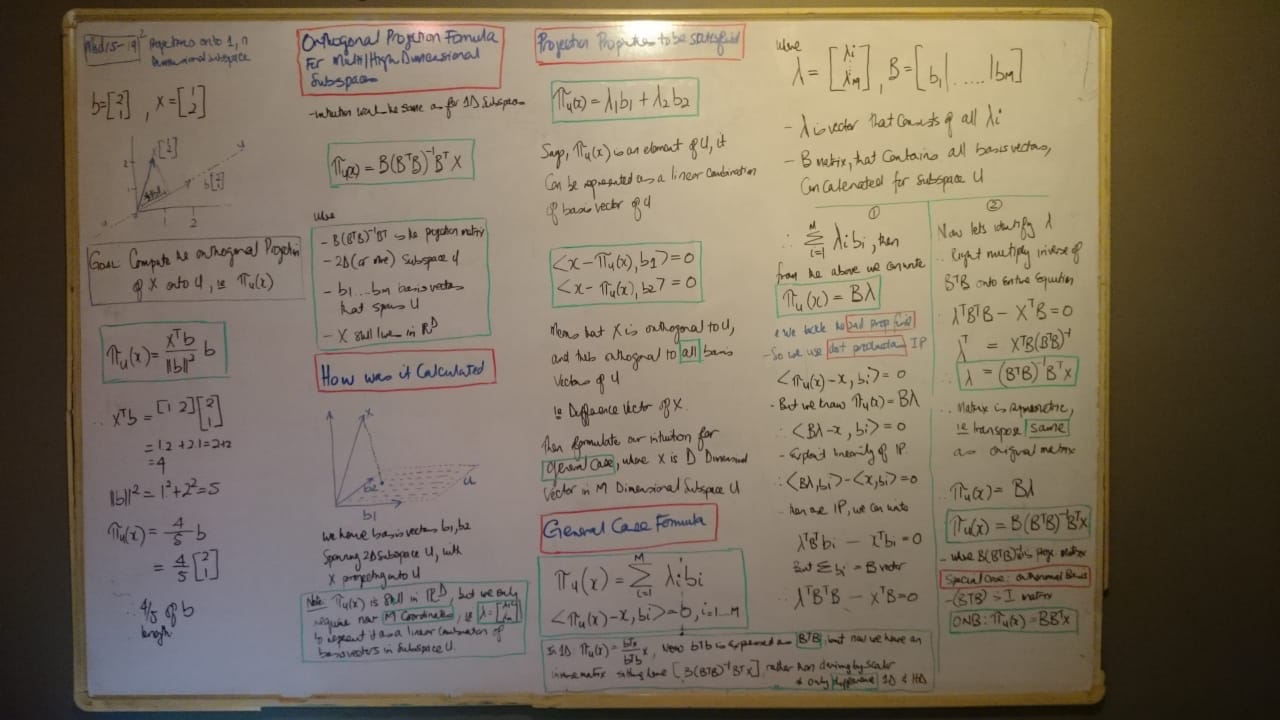 Projections onto 1, n
Dimensional subspace
b=[2 1], x=[1 2]
[1 2]
u
b[2 1]
2
1
1 2
Goal: Compute the orthogonal Projection
of X onto U, ie πu(x)
πu(x) = xᵀb / ||b||² b
∴ xᵀb = [1 2][2 1]
= 1.2 + 2.1 = 2+2
= 4
||b||² = 1²+2² = 5
πu(x) = 4/5 b
= 4/5 [2 1]
∴ 4/5 of b
length
Orthogonal Projection Formula
For Multi/High Dimensional
Subspaces
-intuition will be same as for 1D Subspaces
πu(x) = B(BᵀB)⁻¹BᵀX
where
- B(BᵀB)⁻¹Bᵀ is the projection matrix
- 2D (or more) Subspace U
- b1...bm basis vectors
that spans U
- X still lives in ℝᴰ
How was it Calculated
x
b2
u
b1
we have basis vectors b1, b2
Spanning 2D subspace U, with
X projecting onto U
Note: πu(x) is still in ℝᴰ, but we only
require now M Coordinates, ie λ=[λ1 : λm]
to represent it as a linear combination of
basis vectors in Subspace U.
Projection Properties to be satisfied
πu(x) = λ1b1 + λ2b2
Says, πu(x) is an element of U, it
Can be represented as a linear combination
of basis vector of U
<x - πu(x), b1> = 0
<x - πu(x), b2> = 0
Means that X is orthogonal to U,
and thus orthogonal to all basis
Vectors of U
ie Difference vector of X.
Then formulate our intuition for
general Case, where X is D Dimensional
Vector in M Dimensional Subspace U
General Case Formula
πu(x) = M Σ i=1 λibi
<πu(x)-x, bi> = 0, i=1...M
In 1D πu(x) = bᵀx/bᵀb x, now bᵀb is expressed as BᵀB, but now we have an
inverse matrix sitting here [B(BᵀB)⁻¹BᵀX], rather than dividing by scalar
& only difference 1D & HD
where
λ = [λi : λM], B = [b1|.....|bM]
- λ is vector that Consists of all λi
- B matrix, that Contains all basis vectors,
Concatenated for subspace U
①
∴ M Σ i=1 λibi, then
from the above we can write
πu(x) = Bλ
& we tackle the 2nd prop first
- So we use dot product as IP
<πu(x)-x, bi> = 0
- But we know πu(x) = Bλ
∴ <Bλ-x, bi> = 0
- Exploit linearity of IP
∴ <Bλ, bi> - <x, bi> = 0
IP, we can write
λᵀBᵀbi - xᵀbi = 0
But Σbi = B vector
∴ λᵀBᵀB - XᵀB = 0
②
Now lets identify λ
∴ Right multiply inverse of
BᵀB onto entire Equation
∴ λᵀBᵀB - XᵀB = 0
λᵀ = XᵀB(BᵀB)⁻¹
λ = (BᵀB)⁻¹Bᵀx
∴ Matrix is symmetric,
ie transpose same
as original matrix
∴ πu(x) = Bλ
πu(x) = B(BᵀB)⁻¹Bᵀx
- where B(BᵀB)⁻¹ is proj. matrix
Special Case: orthonormal Basis
- (BᵀB) is I matrix
ONB: πu(x) = BBᵀx